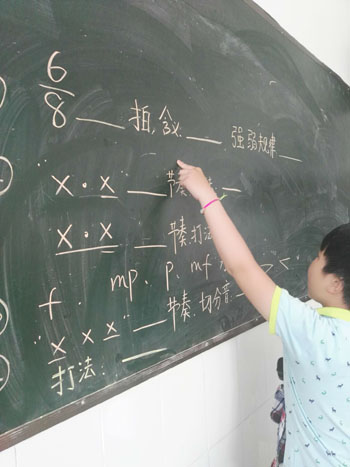 6/8 ___ 拍,含义 ___ 强弱规律 ___
"X · X" ___ 节奏 ___
"X · X" ___ 节奏,打法
f mp、p、mf > <
"X X X" ___ 节奏,切分音 ___
打法: ___